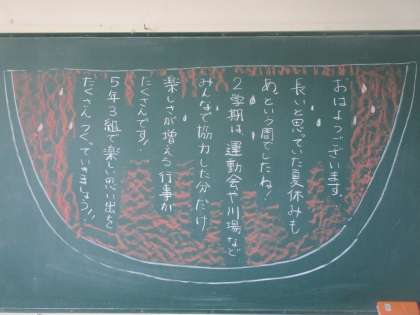 おはようございます。
長いと思っていた夏休みも
あっという間でしたね!
2学期は、運動会や川場など
みんなで協力した分だけ
楽しさが増える行事が
たくさんです!!
5年3組で楽しい思い出を
たくさんつくっていきましょう!!